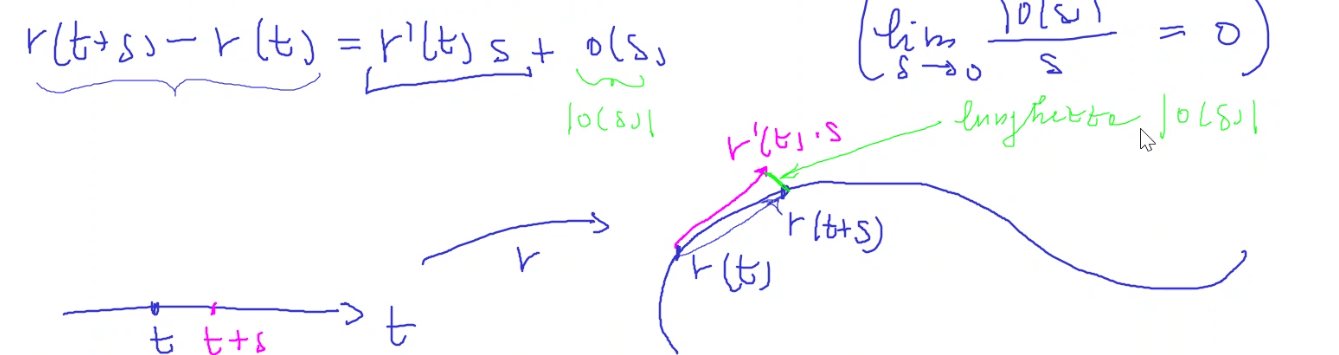 r(t+s) - r(t) = r'(t) s + o(s)
|o(s)|
(lim s→0 |o(s)|/s = 0)
r'(t)·s
lunghezza |o(s)|
r
r(t+s)
r(t)
t t+s
t